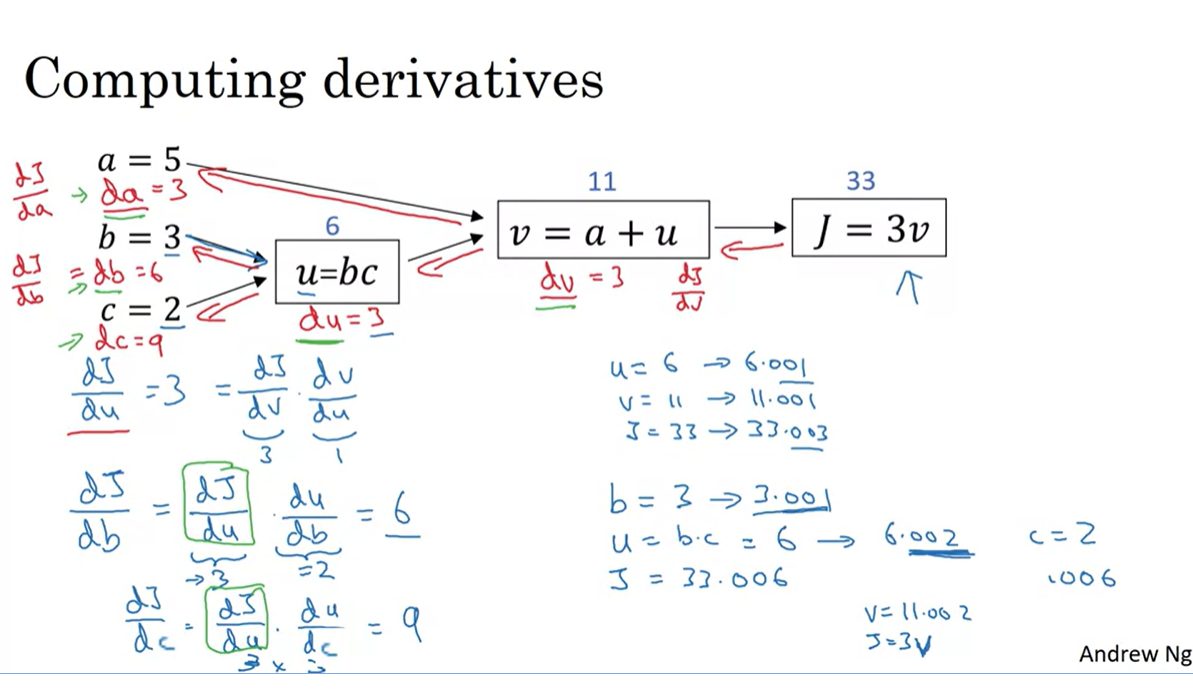 Computing derivatives
a = 5
dJ/da → da = 3
b = 3
dJ/db = db = 6
c = 2
→ dc = 9
6
u=bc
du = 3
11
v = a + u
dv = 3 dJ/dv
33
J = 3v
dJ/du = 3 = dJ/dv · dv/du
3 1
dJ/db = dJ/du · du/db = 6
→ 3 = 2
dJ/dc = dJ/du · du/dc = 9
3 × 3
u = 6 → 6.001
v = 11 → 11.001
J = 33 → 33.003
b = 3 → 3.001
u = b.c = 6 → 6.002 c = 2
J = 33.006 .006
v = 11.002
J = 3v
Andrew Ng